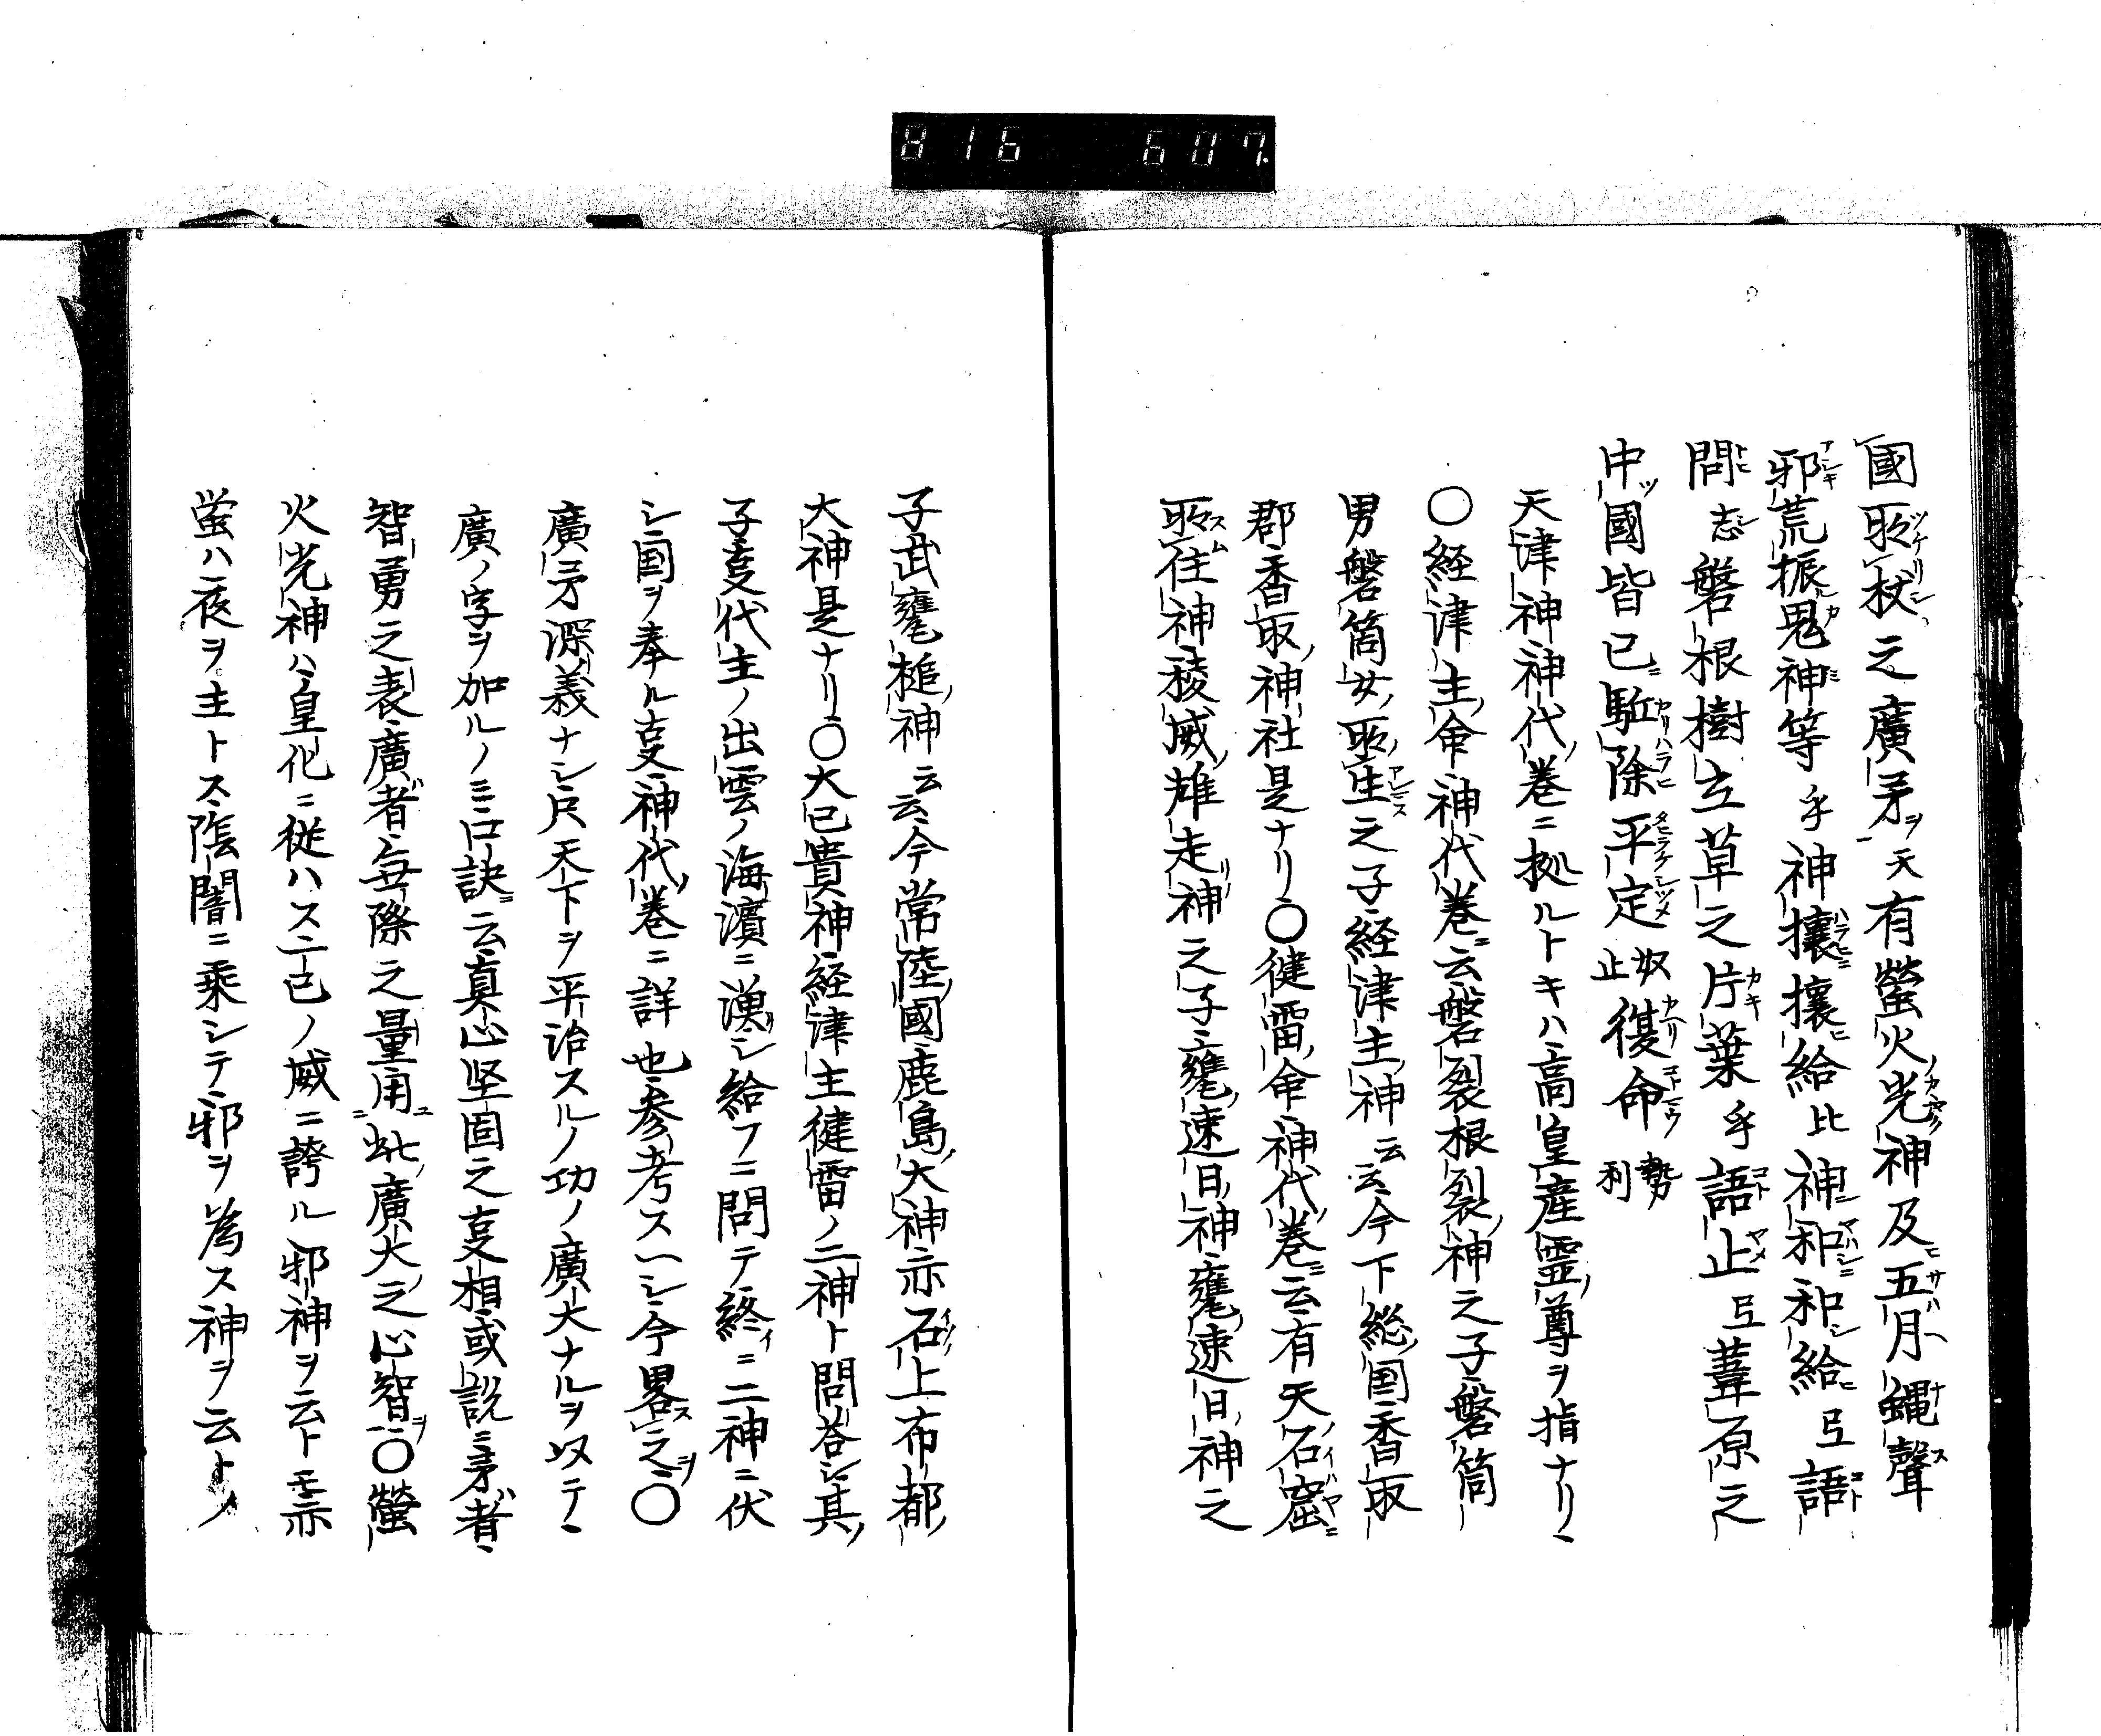 816 607.
國所杖之廣矛ヲ天有螢火光神及五月蠅聲
邪荒振鬼神等乎神攘攘給比神和和給弖語
問志磐根樹立草之片葉乎語止弖葦原之
中國皆已駈除平定止奴復命利勢
天津神神代巻ニ拠ルトキハ高皇産霊尊ヲ指ナリ
〇経津主命神代巻ニ云磐裂根裂神之子磐筒
男磐筒女所生之子経津主神云云今下総国香取
郡香取神社是ナリ〇健雷命神代巻ニ云有天石窟
所住神稜威雄走神之子甕速日神甕速日神之
子武甕槌神云云今常陸國鹿島大神亦石上布都
大神是ナリ〇大已貴神経津主健雷ノ二神ト問答シ其
子事代主ノ出雲ノ海濱ニ漁シ給フニ問テ終ニ二神ニ伏
シ国ヲ奉ル事神代巻ニ詳也参考スヘシ今畧之〇
廣矛深義ナシ只天下ヲ平治スルノ功ノ廣大ナルヲ以テ
廣ノ字ヲ加ルノミ口訣ニ云真心坚固之事相或説ニ矛者
智勇之表廣者無際之量用此廣大之心智〇螢
火光神ハ皇化ニ従ハス己ノ威ニ誇ル邪神ヲ云トモ亦
螢ハ夜ヲ主トス陰闇ニ乗シテ邪ヲ為ス神ヲ云トノ